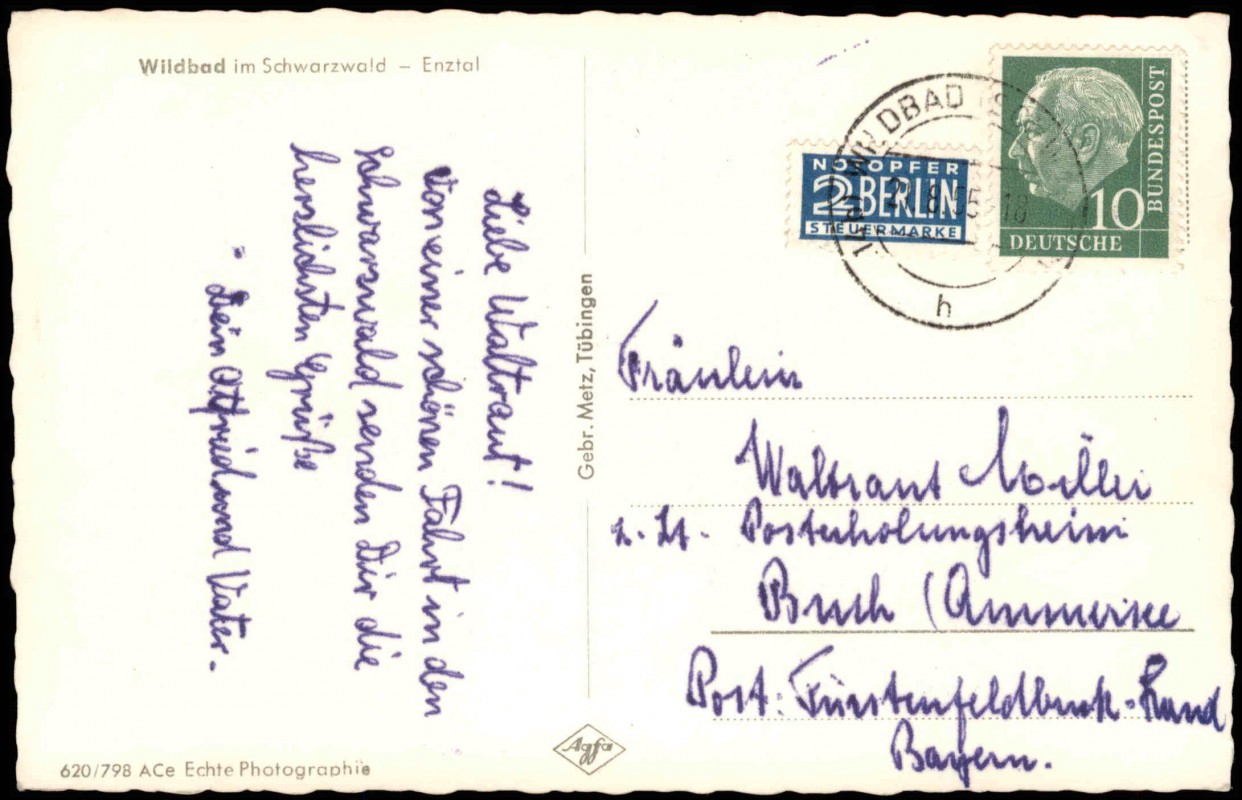 Wildbad im Schwarzwald – Enztal
Liebe Waltraut!
Von einer schönen Fahrt in den
Schwarzwald senden Dir die
herzlichsten Grüße
Dein Ottfried und Vater.
Gebr. Metz, Tübingen
620/798 ACe Echte Photographie
Agfa
NOTOPFER
2 BERLIN
STEUERMARKE
WILDBAD
8.55
h
10
DEUTSCHE
BUNDESPOST
Fräulein
Waltraut
z. Zt. Posterholungsheim
Buch (Ammersee
Post: Fürstenfeldbruck-Land
Bayern.